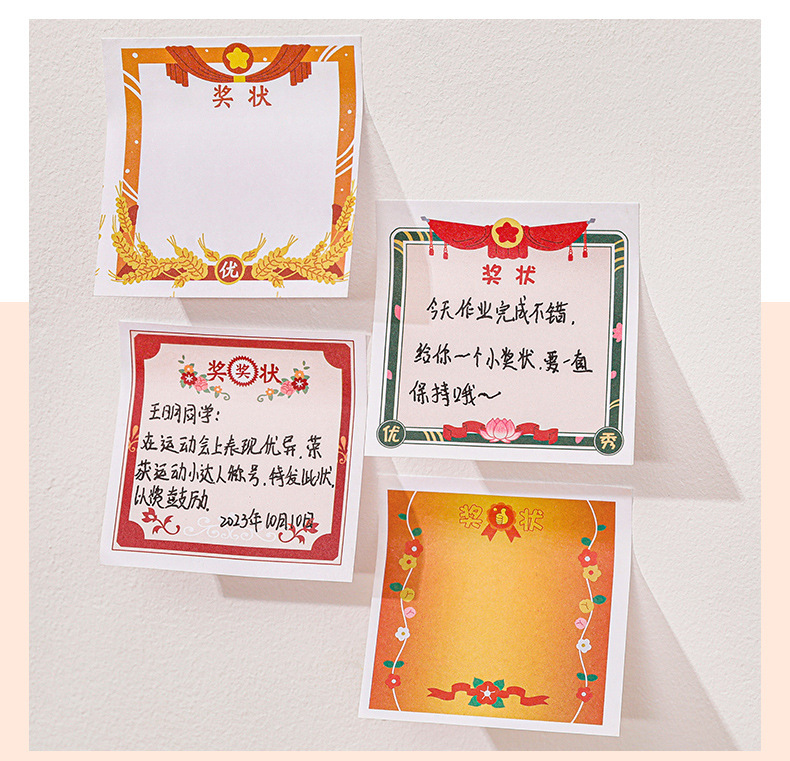 奖状
优
奖状
今天作业完成不错,
给你一个小奖状,要一直
保持哦~
优
秀
奖奖状
王明同学:
在运动会上表现优异,荣
获运动小达人称号,特发此状,
以资鼓励.
2023年10月10日
奖状